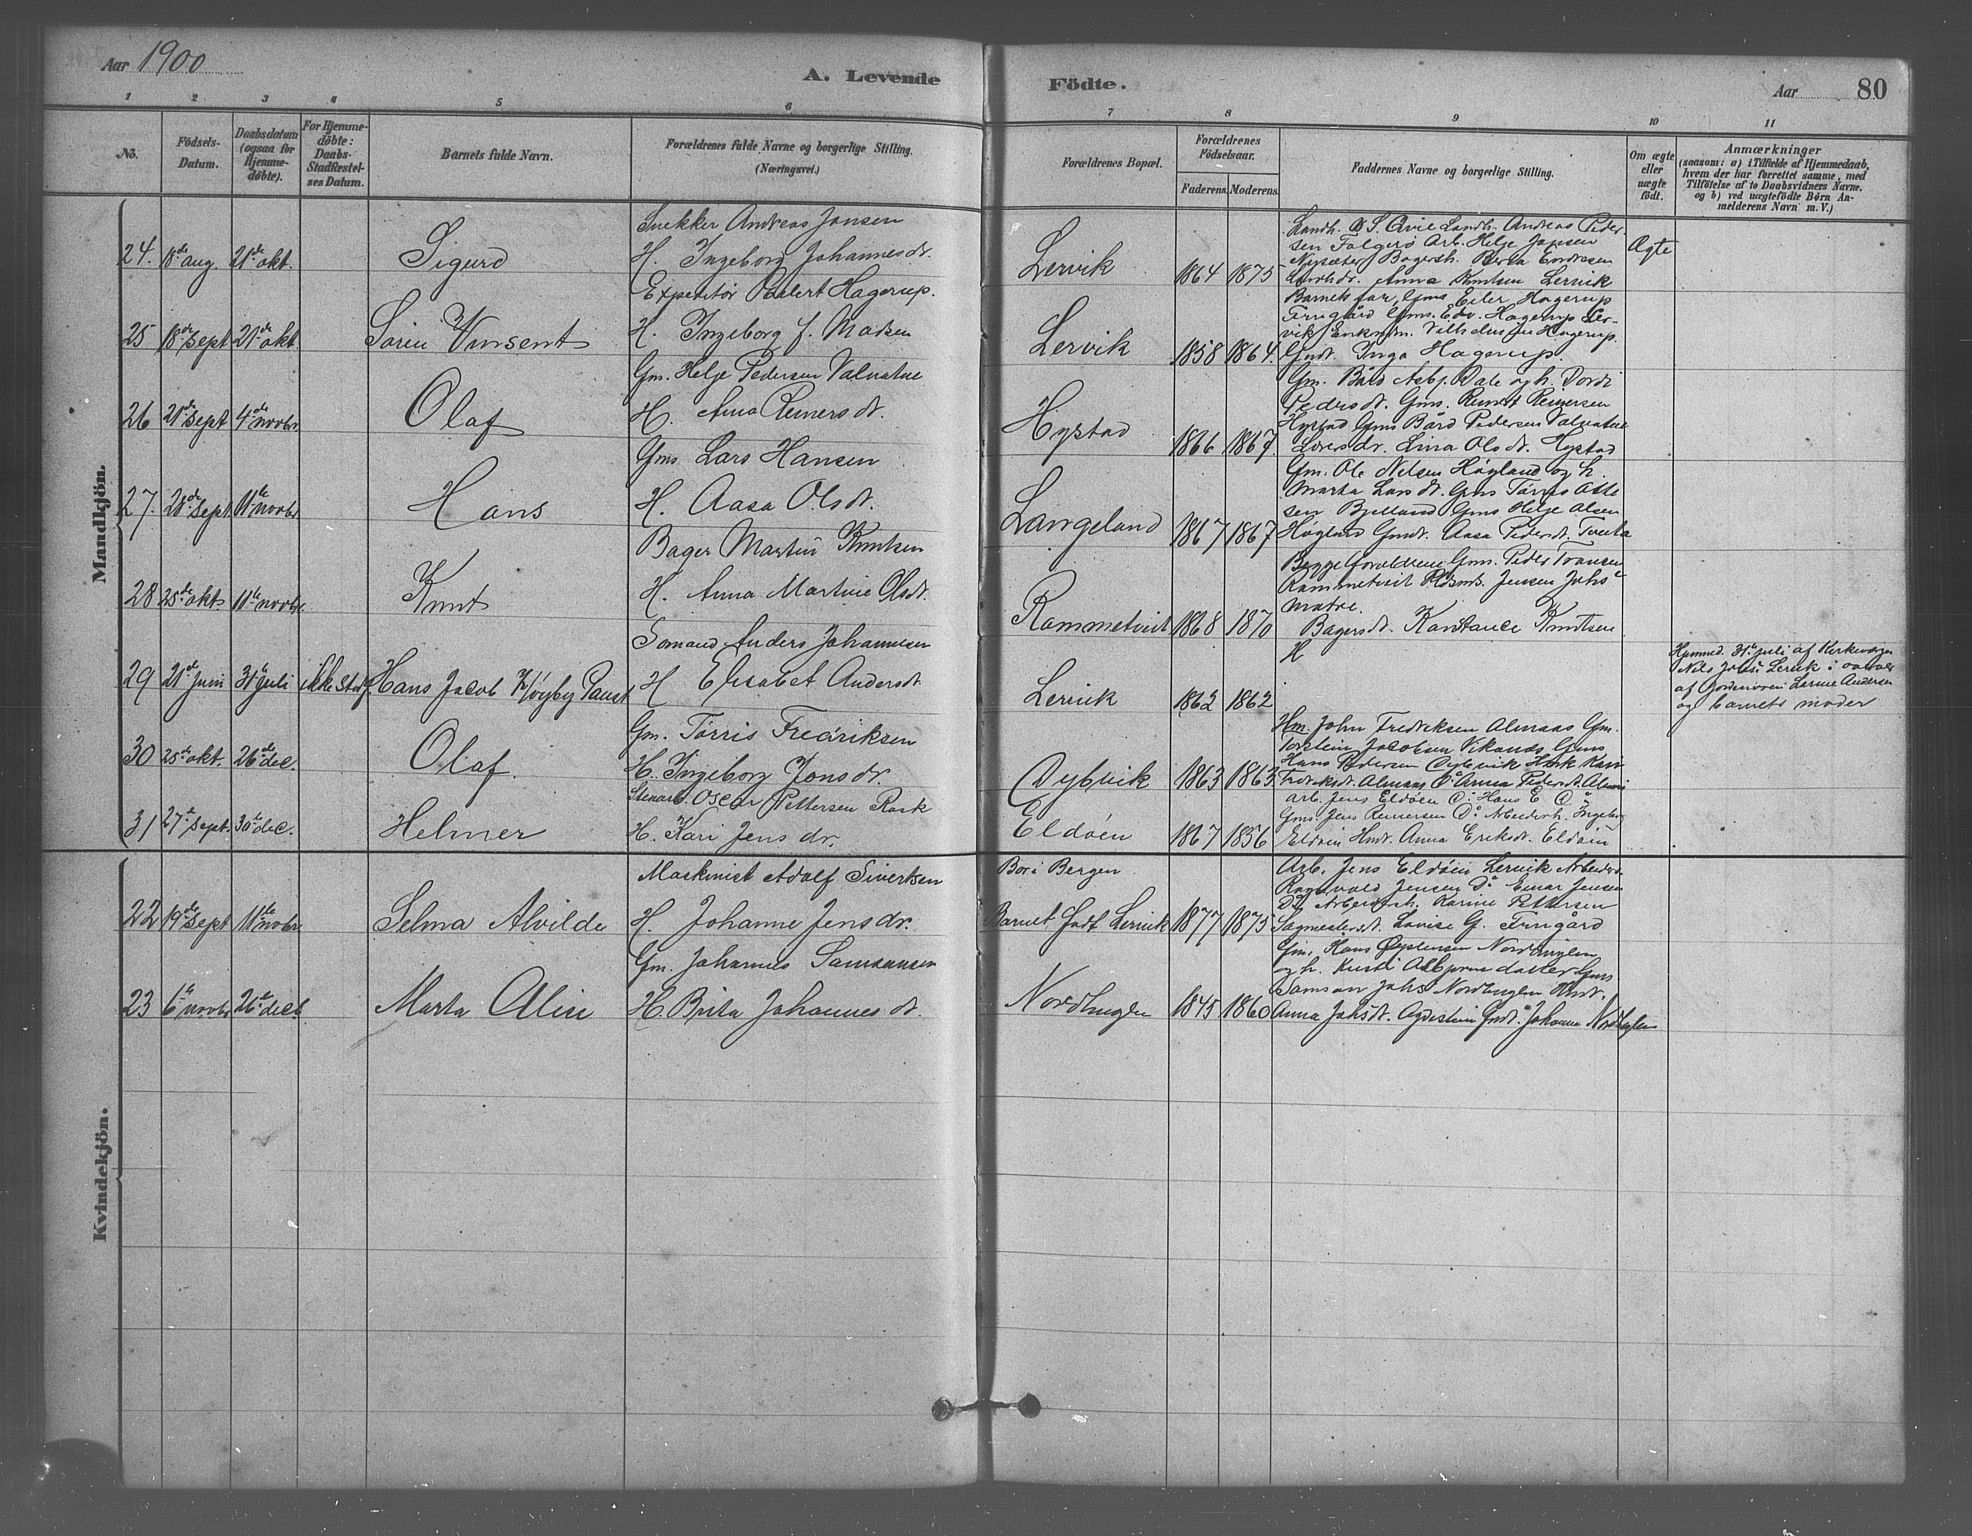 Aar 1900
A. Levende Födte.
Aar 80
1 2 3 4 5 6 7 8 9 10 11
No.
Födsels-Datum.
Daabsdatum (ogsaa for Hjemme-döbte).
For Hjemme-döbte: Daabs-Stadfæstel-ses Datum.
Barnets fulde Navn.
Forældrenes fulde Navne og borgerlige Stilling. (Næringsvei.)
Forældrenes Bopæl.
Forældrenes Födselsaar.
Faderens. Moderens.
Faddernes Navne og borgerlige Stilling.
Om ægte eller uægte födt.
Anmærkninger
(saasom: a) i Tilfælde af Hjemmedaab,
hvem der har forrettet samme, med
Tilföielse af to Daabsvidners Navne.
og b) ved uægtefödte Börn An-
melderens Navn m.V.)
Mandkjön.
24. 18de aug. 21de okt. Sigurd
Snekker Andreas Jansen
H. Ingeborg Johannesdr.
Lervik 1864 1875
Landh. Andreas Peder-
sen Folgerø Arb. Helje
Anna Knutsen Lervik
Ægte
25 18de sept 21de okt. Sören Vinsent
Expeditör Hagerup.
H. Ingeborg f. Madsen
Lervik 1858 1864.
Barnets far, Gms Eiler Hagerup
Gms. Edv. Hagerup Ler-
vik Enkem. Hagerup.
Gmdt. Inga Hagerup.
26 21de sept 4de novbr. Olaf
Gm. Helje Pedersen Valvatne
H. Anna Reinersdt.
Hystad 1866 1867.
Gm. Bård Asbj. Dale og h. Dordi
Pedersdt. Gms. Reinert Reinersen
Hystad Gms Bård Pedersen Valvatne
Lina Olsdt. Hystad
27. 28de sept. 11te novbr Hans
Gms. Lars Hansen
H. Aasa Olsdt.
Langeland 1867 1867
Gm. Ole Nelsen Høgland og h.
Marta Larsdt. Gms Tørris Otte
sen Bjelland Gms Helje Olsen
Høgland Gmdt. Aasa Pedersdt. Tveita
28 25de okt 11te novbr. Knut
Bager Martin Knutsen
H. Anna Martine Olsdt.
Rommetveit 1868 1870
Begge foreldrene Gm. Peder Tronsen
Rommetveit Jensen Johs
Matre.
Bagersdt. Konstance Knutsen
29 21de juni 31te juli ikke stadf. Hans Jacob Høyby Paust
Sømand Anders Johannesen
H Elisabet Andersdt.
Lervik 1862 1862
H
Hjemmed. 31te juli af Kirkesanger
Nils Johs. Lervik i overvær
af Gordemoren Andersen
og barnets moder
30 25de okt. 26de dec. Olaf.
Gm. Tørris Fredriksen
H. Ingeborg Jonsdr.
Dybvik 1863 1863
Hm. John Fredriksen Almaas Gm.
Torstein Jacobsen Vikanes Gms
Hans Pedersen Dybvik Hmk Kari
Fredriksdt. Almaas Do Anna Pedersdt. Almaas
31 27de sept. 30te dec. Helmer
Stenarb. Oscar Pettersen Rosk
H. Kari Jensdr.
Eldøen 1867 1856
Arb. Jens Eldøen Do Hans E. Do
Gms. Jens Reinersen Do Arbeiderh. Ingebor
Eldøen Hmdt. Anna Eriksdt. Eldøen
Kvindekjön.
22 19de sept 11te novbr Selma Alvilde
Maskinist Adolf Sivertsen
H. Johanne Jensdr.
Bor i Bergen
Barnet født Lervik 1877 1875
Arb. Jens Eldøen Lervik
Ragnvald Jensen Do Einar Jensen
Do Arbeidsk. Karine Pettersen
Sagmestersdt. Lovise G. Frugård
23 6te novbr 26de decb. Marta Aline
Gm. Johannes Samsonsen
H. Brita Johannesdt.
Nordhuglen 1845 1860
Gm. Hans Øystensen Nordhuglen
og h. Kristi Asbjørnsdatter Gms
Samson Johs Nordhuglen Gmdt.
Anna Johsdt. Gmdt. Johanna Nordhuglen